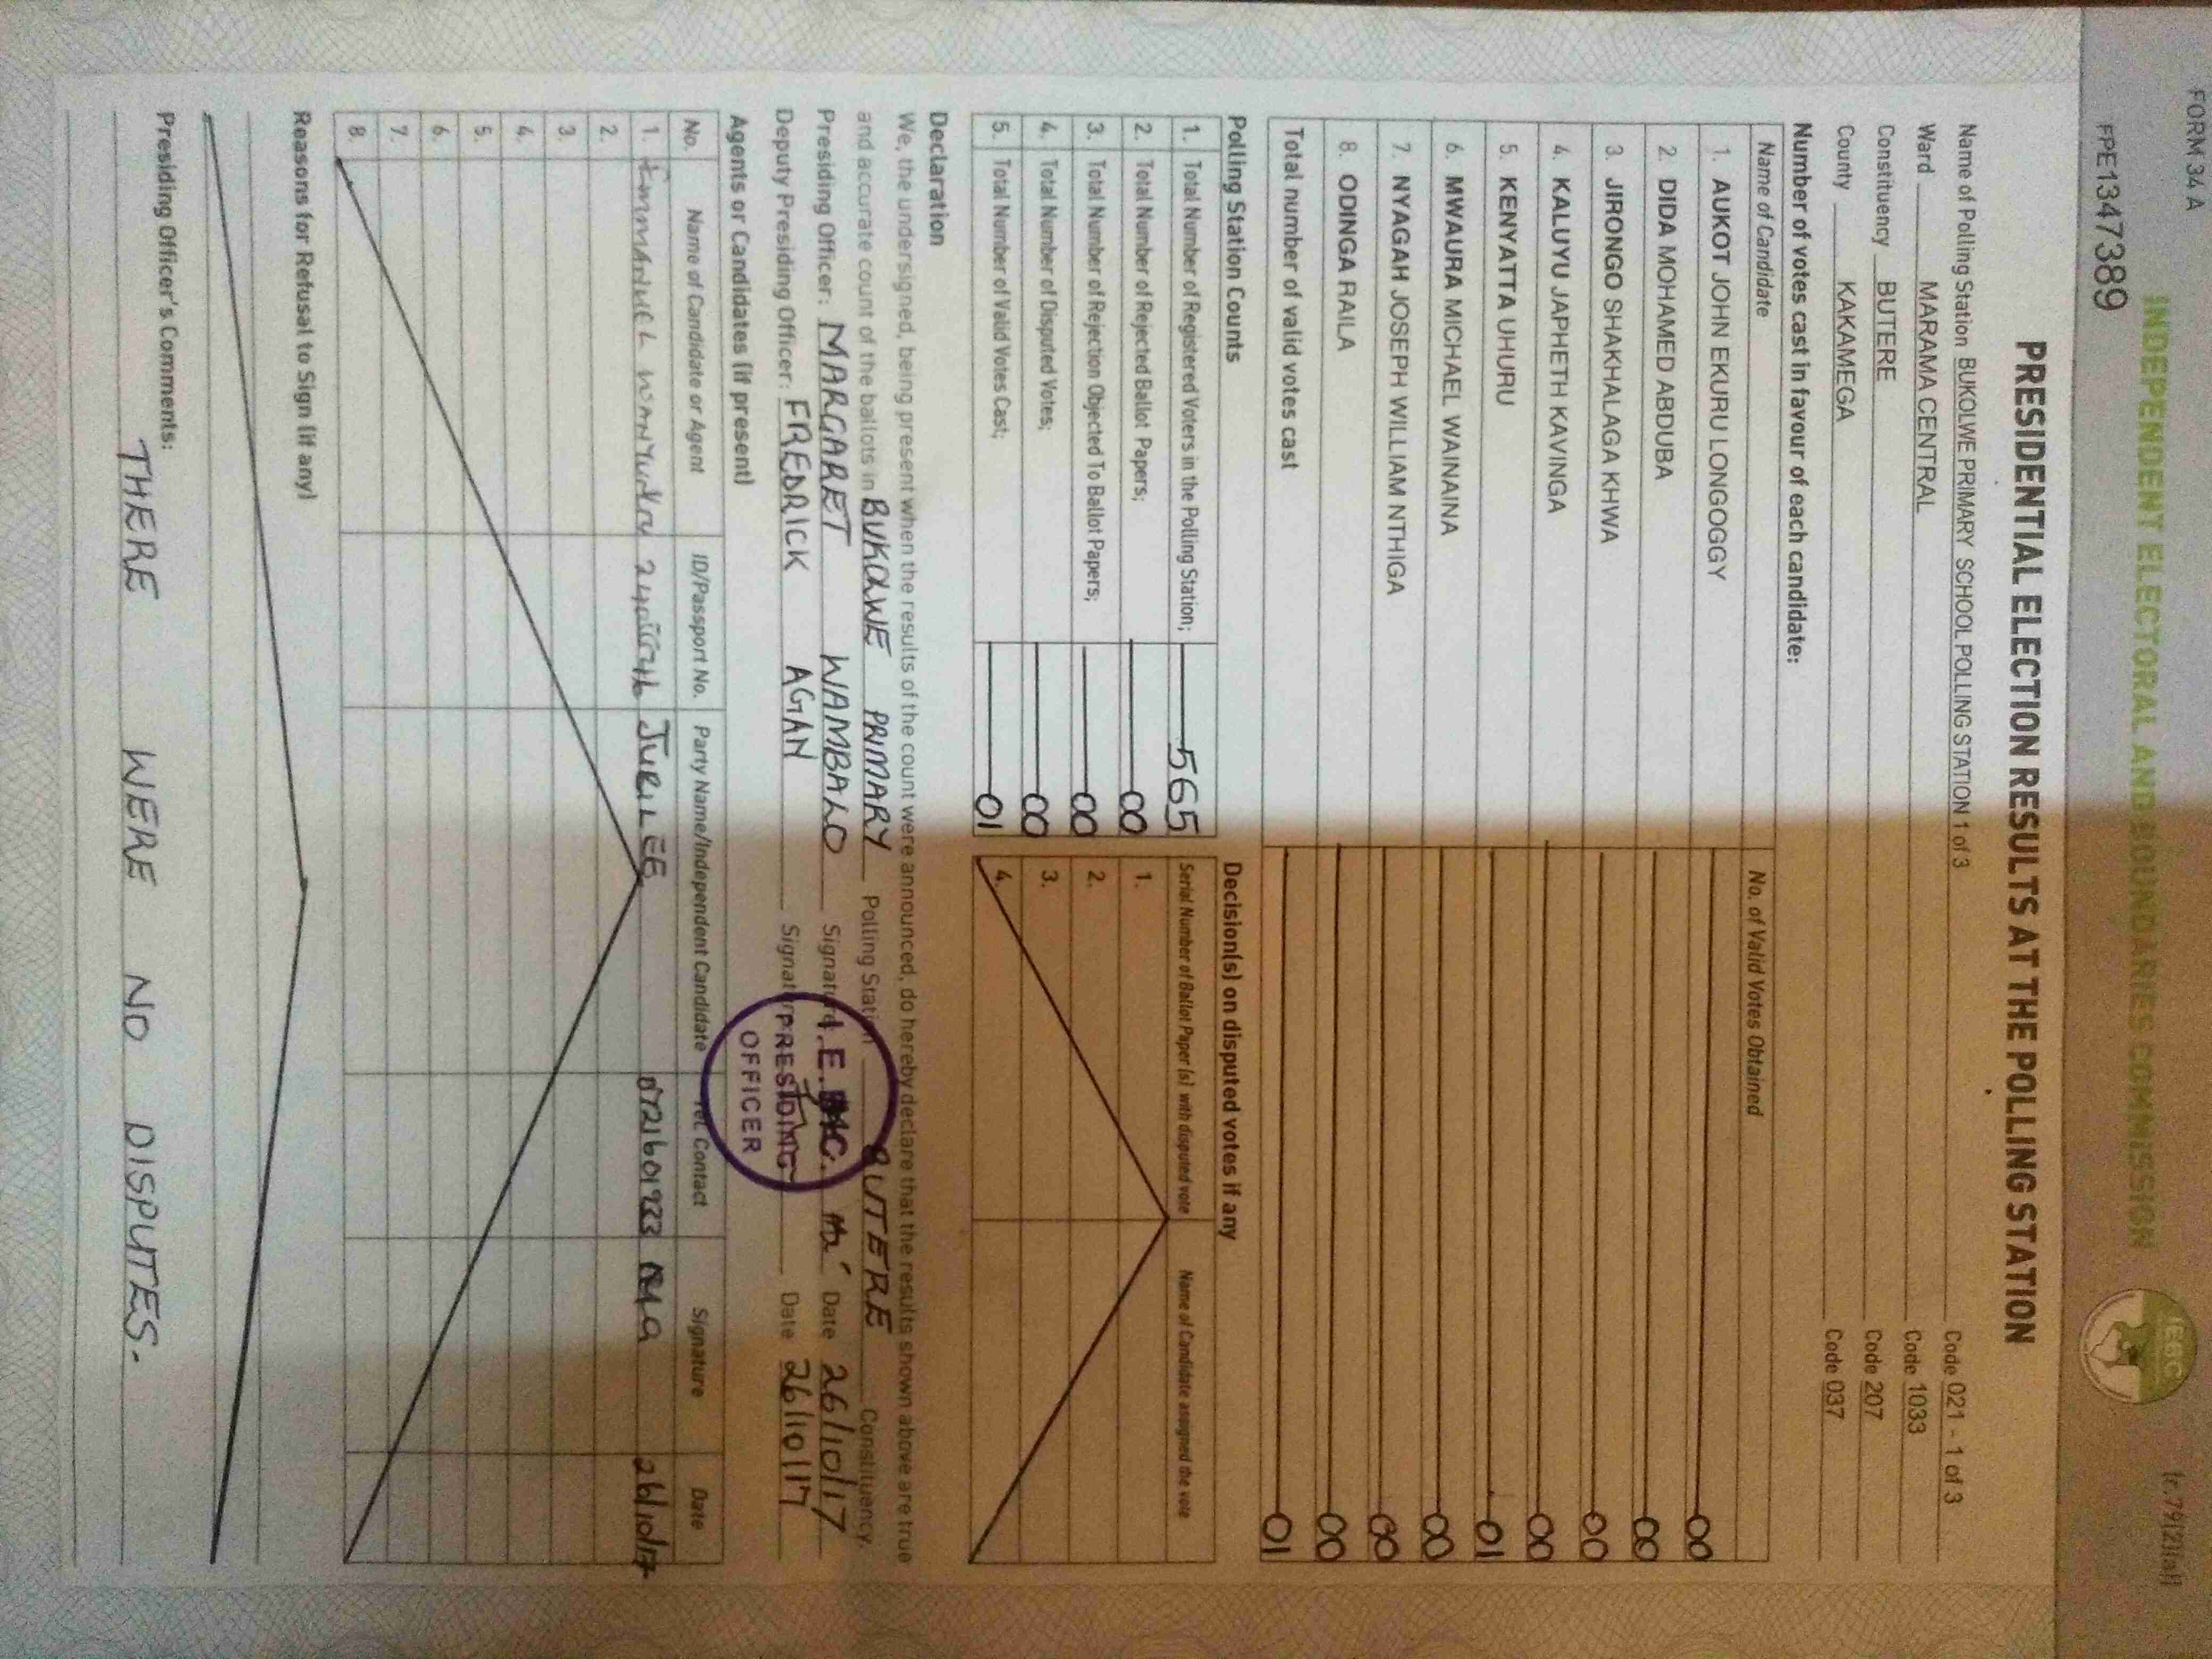 FORM 34 A
INDEPENDENT ELECTORAL AND BOUNDARIES COMMISSION
IEBC
FPE1347389
PRESIDENTIAL ELECTION RESULTS AT THE POLLING STATION
Name of Polling Station BUKOLWE PRIMARY SCHOOL POLLING STATION 1 of 3 Code 021 - 1 of 3
Ward MARAMA CENTRAL Code 1033
Constituency BUTERE Code 207
County KAKAMEGA Code 037
Number of votes cast in favour of each candidate:
Name of Candidate No. of Valid Votes Obtained
1. AUKOT JOHN EKURU LONGOGGY 00
2. DIDA MOHAMED ABDUBA 00
3. JIRONGO SHAKHALAGA KHWA 00
4. KALUYU JAPHETH KAVINGA 00
5. KENYATTA UHURU 01
6. MWAURA MICHAEL WAINAINA 00
7. NYAGAH JOSEPH WILLIAM NTHIGA 00
8. ODINGA RAILA 00
Total number of valid votes cast 01
Polling Station Counts Decision(s) on disputed votes if any
Serial Number of Ballot Paper (s) with disputed vote Name of Candidate assigned the vote
1. Total Number of Registered Voters in the Polling Station; 565
2. Total Number of Rejected Ballot Papers; 00 1.
3. Total Number of Rejection Objected To Ballot Papers; 00 2.
4. Total Number of Disputed Votes; 00 3.
5. Total Number of Valid Votes Cast; 01 4.
Declaration
We, the undersigned, being present when the results of the count were announced, do hereby declare that the results shown above are true
and accurate count of the ballots in BUKOLWE PRIMARY Polling Station BUTERE Constituency.
Presiding Officer: MARGARET WAMBALO Signature Date 26/10/17
Deputy Presiding Officer: FREDRICK AGAN Signature Date 26/10/17
PRESIDING
OFFICER
Agents or Candidates (if present)
No. Name of Candidate or Agent ID/Passport No. Party Name/Independent Candidate Tel. Contact Signature Date
1. Emmanuel JUBILEE 0721601923 26/10/17
2.
3.
4.
5.
6.
7.
8.
Reasons for Refusal to Sign (if any)
Presiding Officer's Comments:
THERE WERE NO DISPUTES.